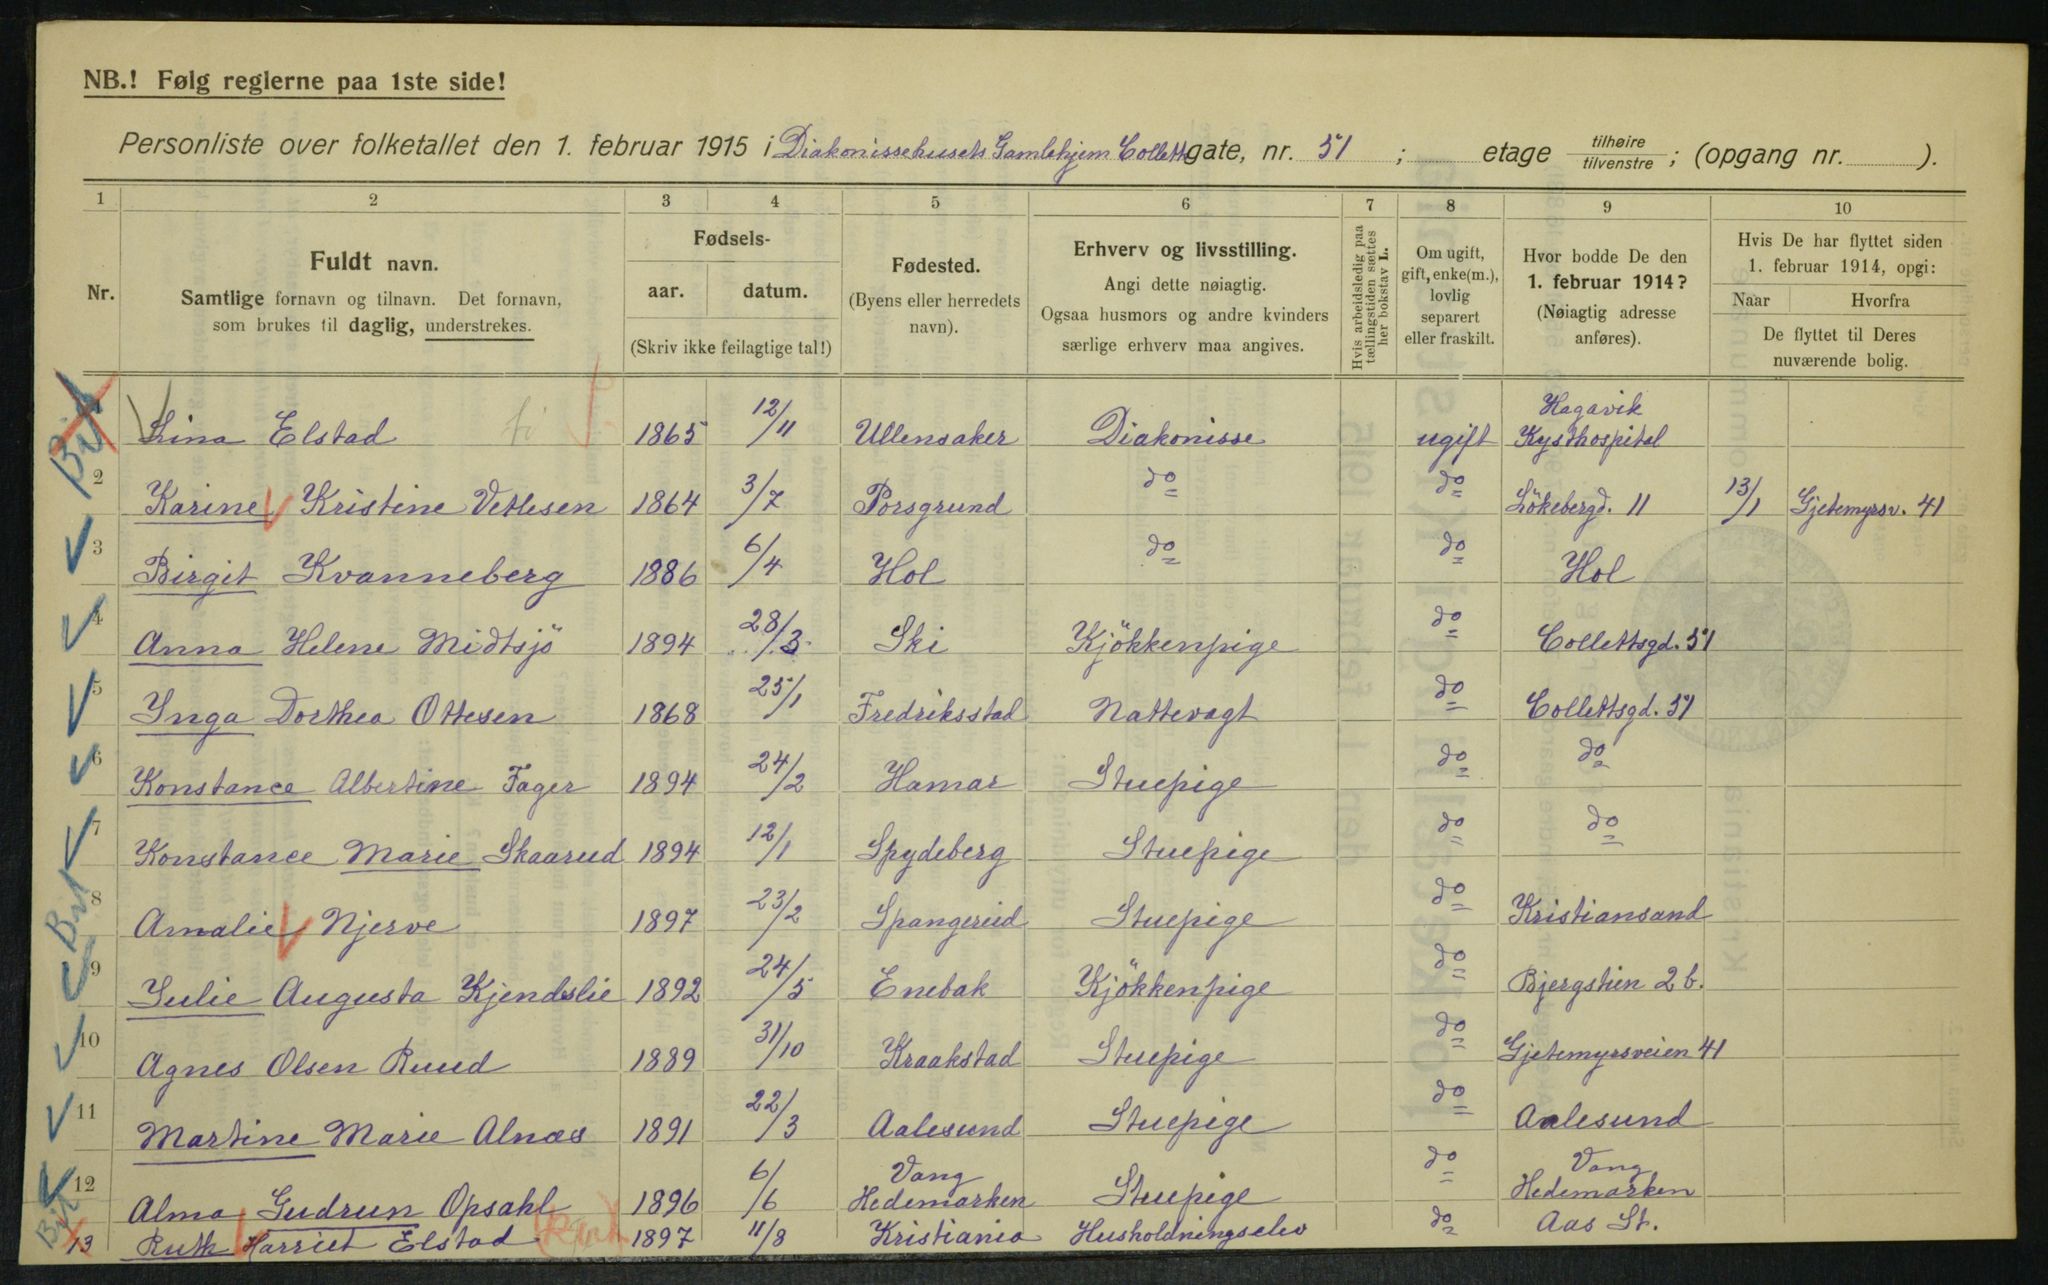 NB.! Følg reglerne paa 1ste side!
Personliste over folketallet den 1. februar 1915 i Diakonissehusets Gamlehjem Collettsgate, nr. 51 ; etage tilhøire tilvenstre ; (opgang nr. ).
1 2 3 4 5 6 7 8 9 10
Nr.
Fuldt navn.
Samtlige fornavn og tilnavn. Det fornavn,
som brukes til daglig, understrekes.
Fødsels-
aar. datum.
(Skriv ikke feilagtige tal!)
Fødested.
(Byens eller herredets
navn).
Erhverv og livsstilling.
Angi dette nøiagtig.
Ogsaa husmors og andre kvinders
særlige erhverv maa angives.
Hvis arbeidsledig paa
tællingstiden sættes
her bokstav L.
Om ugift,
gift, enke(m.),
lovlig
separert
eller fraskilt.
Hvor bodde De den
1. februar 1914?
(Nøiagtig adresse
anføres).
Hvis De har flyttet siden
1. februar 1914, opgi:
Naar Hvorfra
De flyttet til Deres
nuværende bolig.
Lina Elstad 1865 12/11 Ullensaker Diakonisse ugift Hagavik Kysthospital
2 Karine Kristine Vetlesen 1864 3/7 Porsgrund do do Lökebergd. 11 13/1 Gjetemyrsv. 41
3 Birgit Kvanneberg 1886 6/4 Hol do do Hol
4 Anna Helene Midtsjö 1894 28/3 Ski Kjökkenpige do Collettsgd. 51
5 Inga Dorthea Ottesen 1868 25/1 Fredriksstad Nattevagt do Collettsgd. 51
6 Konstance Albertine Fager 1894 24/2 Hamar Stuepige do do
7 Konstance Marie Skaarud 1894 12/1 Spydeberg Stuepige do do
8 Amalie Njerve 1897 23/2 Spangereid Stuepige do Kristiansand
9 Julie Augusta Kjendslie 1892 24/5 Enebak Kjökkenpige do Bjergstien 2 b.
10 Agnes Olsen Ruud 1889 31/10 Kraakstad Stuepige do Gjetemyrsveien 41
11 Martine Marie Alnæs 1891 22/3 Aalesund Stuepige do Aalesund
12 Alma Gudrun Opsahl 1896 6/6 Vang Hedemarken Stuepige do Vang Hedemarken
13 Ruth Harriet Elstad 1897 11/8 Kristiania Husholdningselev do Aas St.